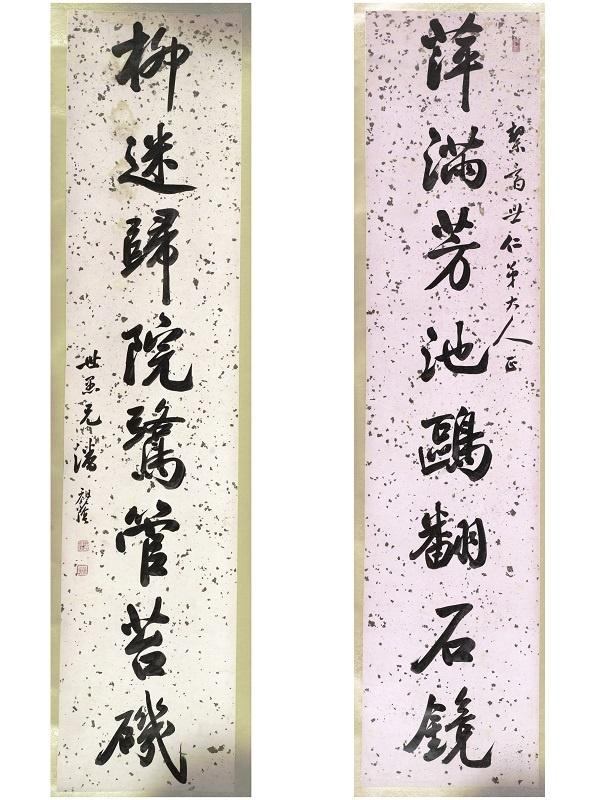 絜齋世仁弟大人正
萍滿芳池鷗翻石鏡
柳迷歸院鷺管苔磯
世愚兄潘祖蔭